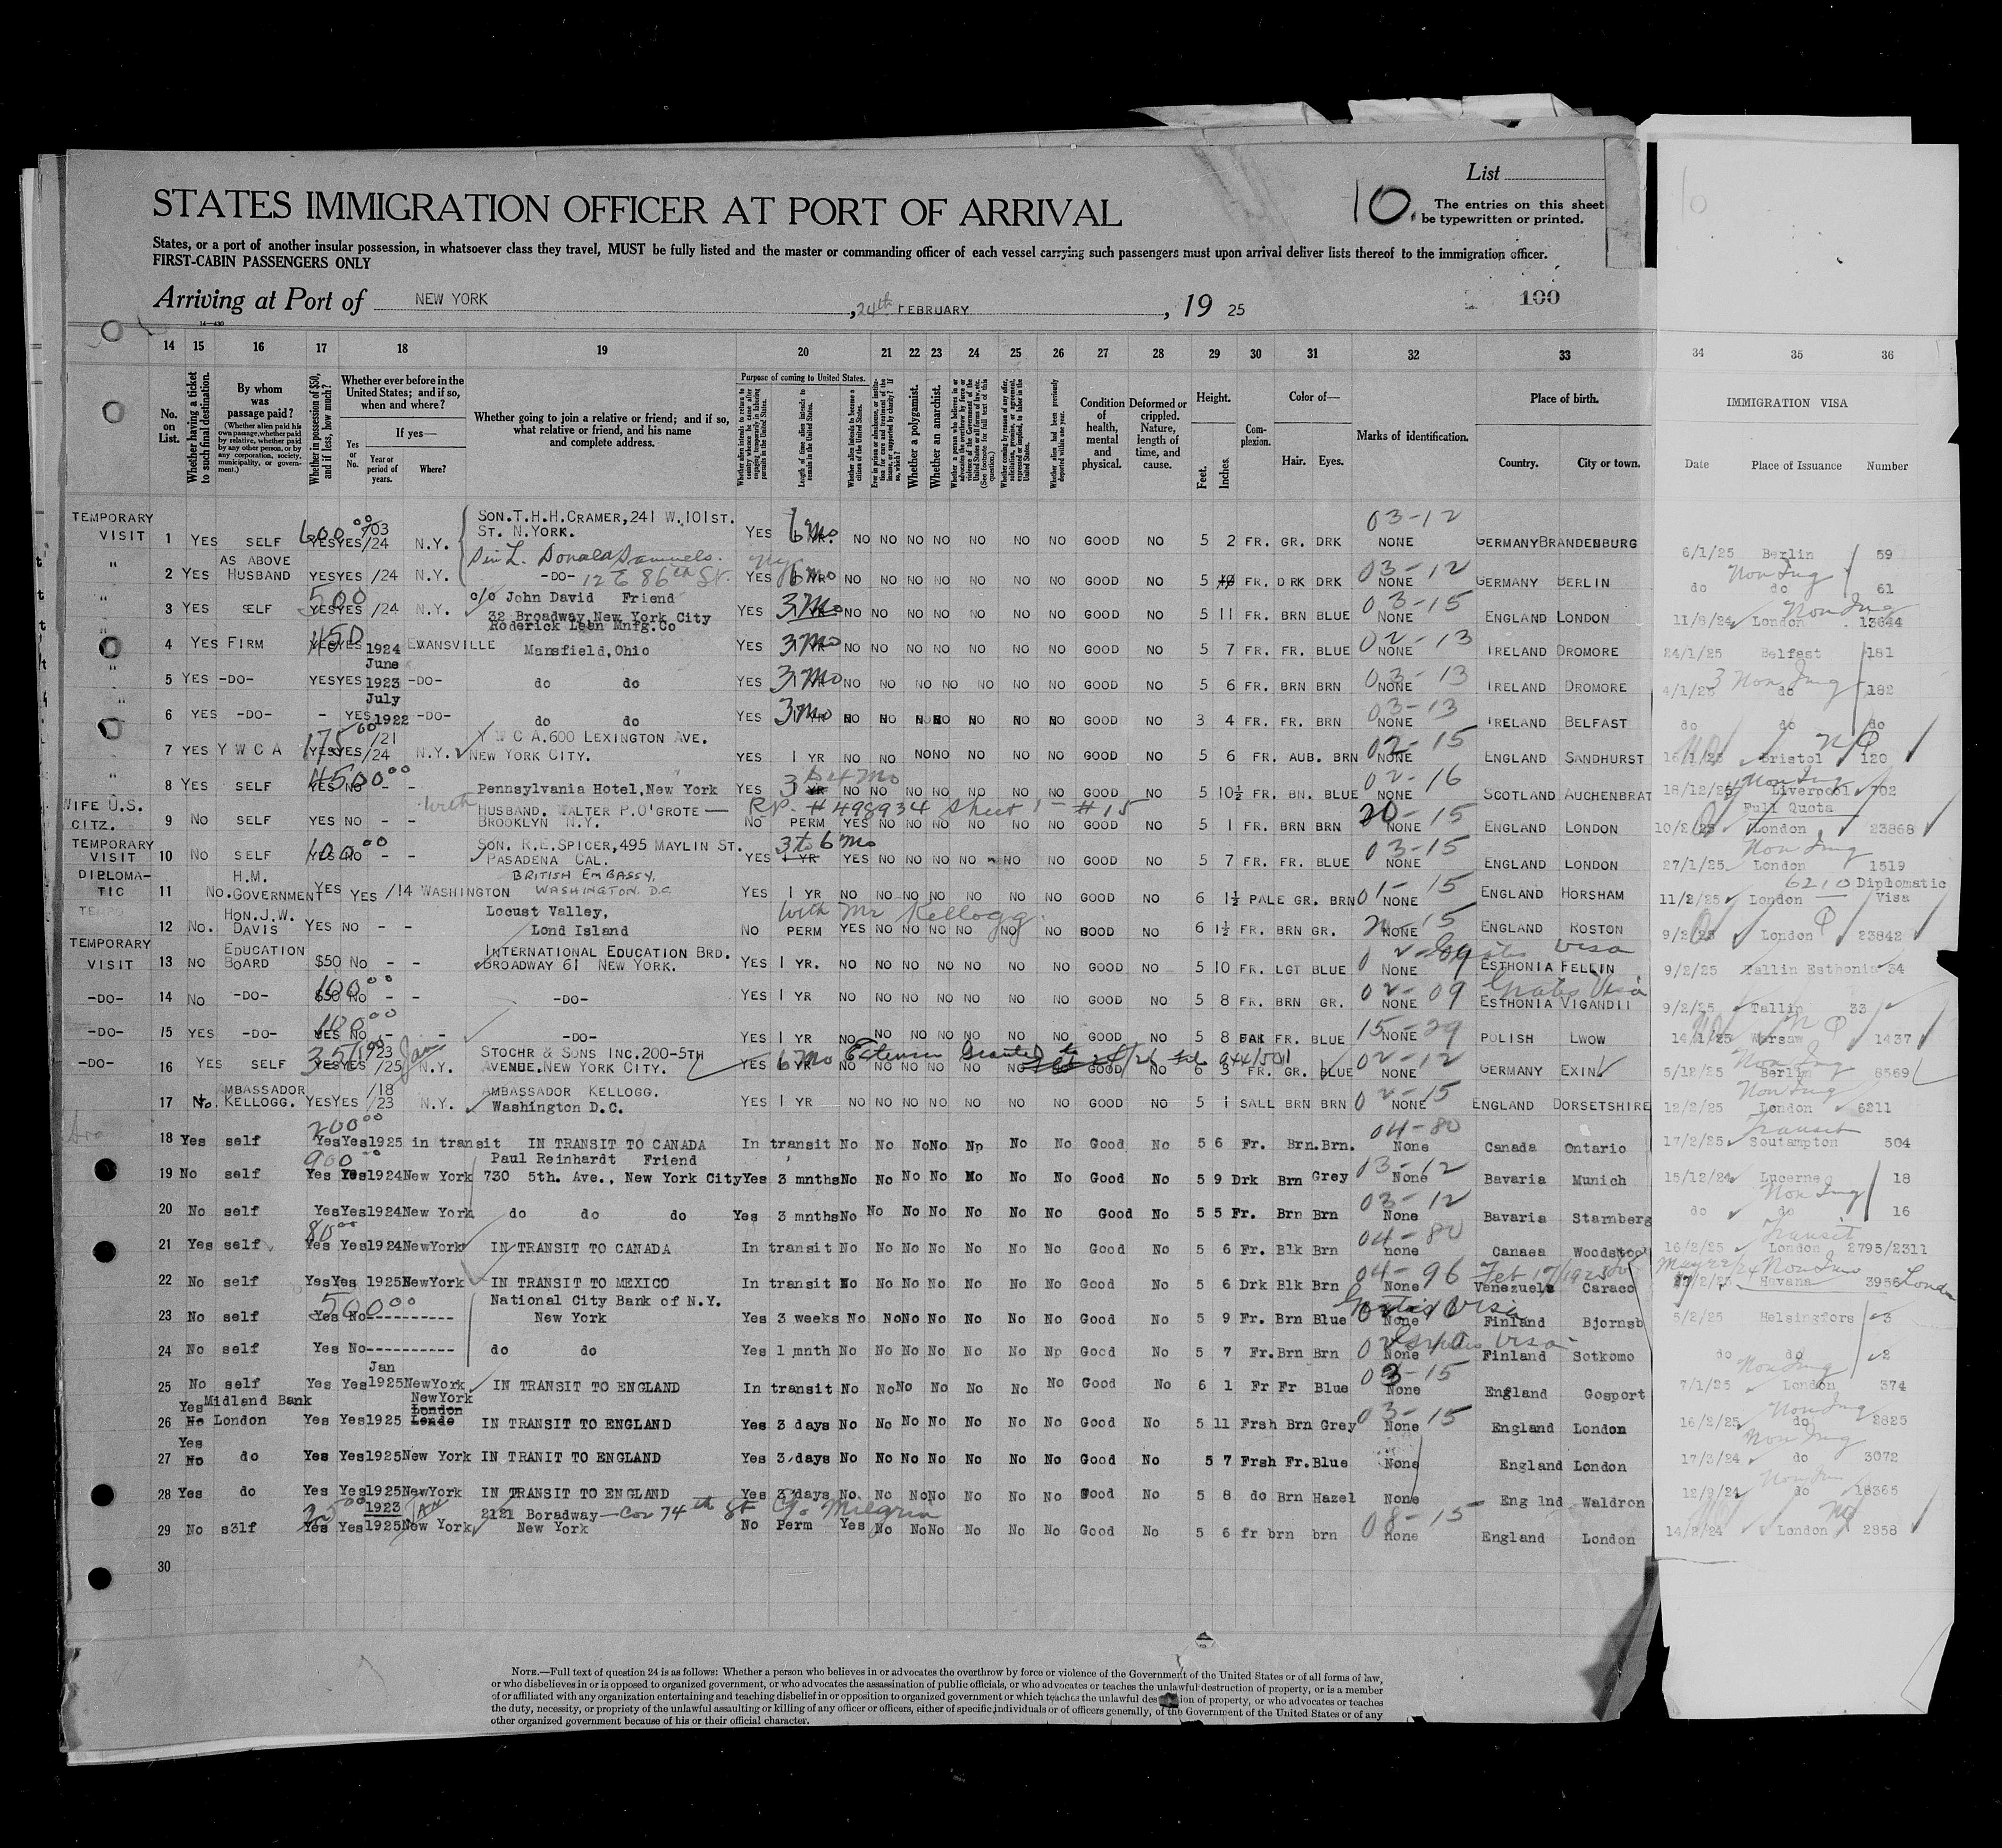 List
10.
The entries on this sheet
be typewritten or printed.
STATES IMMIGRATION OFFICER AT PORT OF ARRIVAL
States, or a port of another insular possession, in whatsoever class they travel, MUST be fully listed and the master or commanding officer of each vessel carrying such passengers must upon arrival deliver lists thereof to the immigration officer.
FIRST-CABIN PASSENGERS ONLY
Arriving at Port of NEW YORK , 24th FEBRUARY , 19 25 100
14 15 16 17 18 19 20 21 22 23 24 25 26 27 28 29 30 31 32 33 34 35 36
No. on List.
Whether having a ticket to such final destination.
By whom was passage paid?
(Whether alien paid his own passage, whether paid by relative, whether paid by any other person, or by any corporation, society, municipality, or government.)
Whether in possession of $50, and if less, how much?
Whether ever before in the United States; and if so, when and where?
Yes or No.
If yes—
Year or period of years.
Where?
Whether going to join a relative or friend; and if so, what relative or friend, and his name and complete address.
Purpose of coming to United States.
Length of time alien intends to remain in the United States.
Whether alien intends to become a citizen of the United States.
Whether a polygamist.
Whether an anarchist.
Condition of health, mental and physical.
Deformed or crippled. Nature, length of time, and cause.
Height.
Feet. Inches.
Complexion.
Color of—
Hair. Eyes.
Marks of identification.
Place of birth.
Country. City or town.
IMMIGRATION VISA
Date Place of Issuance Number
TEMPORARY VISIT 1 YES SELF 600 00 YES YES /24 N.Y. SON.T.H.H.CRAMER,241 W.101ST. ST. N.YORK. YES 6 Mo NO NO NO NO NO NO NO GOOD NO 5 2 FR. GR. DRK 03-12 NONE GERMANY BRANDENBURG 6/1/25 Berlin 59
" 2 YES AS ABOVE HUSBAND YES YES /24 N.Y. -DO- 12 E 86th St. YES 6 Mo NO NO NO NO NO NO NO GOOD NO 5 FR. DRK DRK 03-12 NONE GERMANY BERLIN do do 61
" 3 YES SELF 500 YES YES /24 N.Y. c/o John David Friend 32 Broadway New York City YES 3 Mo NO NO NO NO NO NO NO GOOD NO 5 11 FR. BRN BLUE 03-15 NONE ENGLAND LONDON 11/8/24 London 13644
4 YES FIRM 450 YES 1924 EVANSVILLE Roderick Lean Mnfg.Co Mansfield,Ohio YES 3 Mo NO NO NO NO NO NO NO GOOD NO 5 7 FR. FR. BLUE 02-13 NONE IRELAND DROMORE 24/1/25 Belfast 181
" 5 YES -DO- YES YES June 1923 -DO- do do YES 3 Mo NO NO NO NO NO NO NO GOOD NO 5 6 FR. BRN BRN 03-13 NONE IRELAND DROMORE do 182
" 6 YES -DO- - YES July 1922 -DO- do do YES 3 Mo NO NO NO NO NO NO NO GOOD NO 3 4 FR. FR. BRN 03-13 NONE IRELAND BELFAST do do do
7 YES Y W C A 175 00 YES YES /21 /24 N.Y. Y W C A.600 LEXINGTON AVE. NEW YORK CITY. YES 1 YR NO NO NO NO NO NO NO GOOD NO 5 6 FR. AUB. BRN 02-15 NONE ENGLAND SANDHURST 16/1/25 Bristol 120
" 8 YES SELF 4500 00 YES NO - - Pennsylvania Hotel,New York YES 3 to 4 Mo NO NO NO NO NO NO NO GOOD NO 5 10½ FR. BN. BLUE 02-16 NONE SCOTLAND AUCHENBRAT 18/12/25 Liverpool 702
WIFE U.S. CITZ. 9 NO SELF YES NO - - with HUSBAND. WALTER P.O'GROTE — BROOKLYN N.Y. R.P. #498934 Sheet 1 - #15 NO PERM YES NO NO NO NO NO NO GOOD NO 5 1 FR. BRN BRN 20-15 NONE ENGLAND LONDON Full Quota 10/2/25 London 23868
TEMPORARY VISIT 10 NO SELF 100 00 YES NO - - SON. R.E.SPICER,495 MAYLIN ST. PASADENA CAL. YES 3 to 6 Mo 1 YR YES NO NO NO NO NO NO GOOD NO 5 7 FR. FR. BLUE 03-15 NONE ENGLAND LONDON Non Img 27/1/25 London 1519
DIPLOMATIC 11 NO. H.M. GOVERNMENT YES YES /14 WASHINGTON BRITISH EMBASSY, WASHINGTON. D.C. YES 1 YR NO NO NO NO NO NO NO GOOD NO 6 1½ PALE GR. BRN 01-15 NONE ENGLAND HORSHAM 11/2/25 London 6210 Diplomatic Visa
12 NO. HON.J.W. DAVIS YES NO - - Locust Valley, Lond Island With Mr Kellogg. NO PERM YES NO NO NO NO NO NO GOOD NO 6 1½ FR. BRN GR. NONE ENGLAND ROSTON 9/2/25 London 23842
TEMPORARY VISIT 13 NO EDUCATION BOARD $50 NO - - INTERNATIONAL EDUCATION BRD. BROADWAY 61 NEW YORK. YES 1 YR. NO NO NO NO NO NO NO GOOD NO 5 10 FR. LGT BLUE 02-09 NONE Gratis Visa ESTHONIA FELLIN 9/2/25 Tallin Esthonia 34
-DO- 14 NO -DO- 100 00 $50 NO - - -DO- YES 1 YR NO NO NO NO NO NO NO GOOD NO 5 8 FR. BRN GR. 02-09 NONE Gratis Visa ESTHONIA VIGANDII 9/2/25 Tallin 33
-DO- 15 YES -DO- 100 00 YES NO - - -DO- YES 1 YR NO NO NO NO NO NO NO GOOD NO 5 8 FR. BLUE 15-29 NONE POLISH LWOW 14/1/25 Warsaw 1437
-DO- 16 YES SELF YES YES 1923 /25 Jan N.Y. STOCHR & SONS INC.200-5TH AVENUE.NEW YORK CITY. YES 6 Mo Extension Granted to NO NO NO NO NO NO NO GOOD NO 6 3 FR. GR. BLUE 02-12 NONE GERMANY EXIN 5/12/25 Berlin 8569
17 No. AMBASSADOR KELLOGG. YES YES /18 /23 N.Y. AMBASSADOR KELLOGG. Washington D.C. YES 1 YR NO NO NO NO NO NO NO GOOD NO 5 1 SALL BRN BRN 02-15 NONE ENGLAND DORSETSHIRE Non Img 12/2/25 London 6211
18 Yes self 200 00 Yes Yes 1925 in transit IN TRANSIT TO CANADA In transit No No No No No No No Good No 5 6 Fr. Brn. Brn. 04-80 None Canada Ontario Transit 17/2/25 Soutampton 504
19 No self 900 00 Yes Yes 1924 New York Paul Reinhardt Friend 730 5th. Ave., New York City Yes 3 mnths No No No No No No No Good No 5 9 Drk Brn Grey 03-12 None Bavaria Munich 15/12/24 Lucerne 18
20 No self Yes Yes 1924 New York do do do Yes 3 mnths No No No No No No No Good No 5 5 Fr. Brn Brn 03-12 None Bavaria Starnberg Non Img do do 16
21 Yes self 80 00 Yes Yes 1924 NewYork IN TRANSIT TO CANADA In transit No No No No No No No Good No 5 6 Fr. Blk Brn 04-80 none Canaea Woodstoc Transit 16/2/25 London 2795/2311
22 No self Yes Yes 1925 NewYork IN TRANSIT TO MEXICO In transit No No No No No No No Good No 5 6 Drk Blk Brn 04-96 None Feb 17/1925 Venezuela Caraco Havana 3956 London
23 No self 500 00 Yes No---------- National City Bank of N.Y. New York Yes 3 weeks No No No No No No No Good No 5 9 Fr. Brn Blue None Gratis Visa Finland Bjornsb 5/2/25 Helsingfors 3
24 No self Yes No---------- do do Yes 1 mnth No No No No No No No Good No 5 7 Fr. Brn Brn None Gratis Visa Finland Sotkomo do do 2
25 No self Yes Yes Jan 1925 NewYork IN TRANSIT TO ENGLAND In transit No No No No No No No Good No 6 1 Fr Fr Blue 03-15 None England Gosport Non Img 7/1/25 London 374
26 Yes No Midland Bank London Yes Yes 1925 NewYork London IN TRANSIT TO ENGLAND Yes 3 days No No No No No No No Good No 5 11 Frsh Brn Grey 03-15 None England London Non Img 16/2/25 do 2825
27 Yes No do Yes Yes 1925 New York IN TRANIT TO ENGLAND Yes 3 days No No No No No No No Good No 5 7 Frsh Fr. Blue None England London Non Img 17/3/24 do 3072
28 Yes do Yes Yes 1925 NewYork IN TRANSIT TO ENGLAND Yes 3 days No No No No No No No Good No 5 8 do Brn Hazel None Eng lnd Waldron 12/9/24 do 18365
29 No s3lf 25 00 Yes Yes 1923 1925 New York 2121 Boradway — Cor 74th St c/o Milgrim New York No Perm Yes No No No No No No Good No 5 6 fr brn brn 08-15 None England London 14/2/24 London 2858
30
NOTE.—Full text of question 24 is as follows: Whether a person who believes in or advocates the overthrow by force or violence of the Government of the United States or of all forms of law,
or who disbelieves in or is opposed to organized government, or who advocates the assassination of public officials, or who advocates or teaches the unlawful destruction of property, or is a member
of or affiliated with any organization entertaining and teaching disbelief in or opposition to organized government or which teaches the unlawful des ion of property, or who advocates or teaches
the duty, necessity, or propriety of the unlawful assaulting or killing of any officer or officers, either of specific individuals or of officers generally, of the Government of the United States or of any
other organized government because of his or their official character.